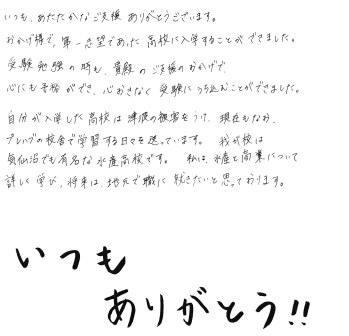 いつも、あたたかなご支援 ありがとうございます。
おかげ様で、第一志望であった 高校に入学することが できました。
受験勉強の時も、貴殿のご支援のおかげで、
心にも余裕ができ、心おきなく 受験に うち込むことができました。
自分が入学した高校は 津波の被害をうけ、現在もなお、
プレハブの校舎で学習する日々を送っています。 我が校は
気仙沼でも有名な水産高校です。 私は、水産と商業について
詳しく学び、将来は、地元で職に 就きたいと思っております。
いつも
ありがとう!!